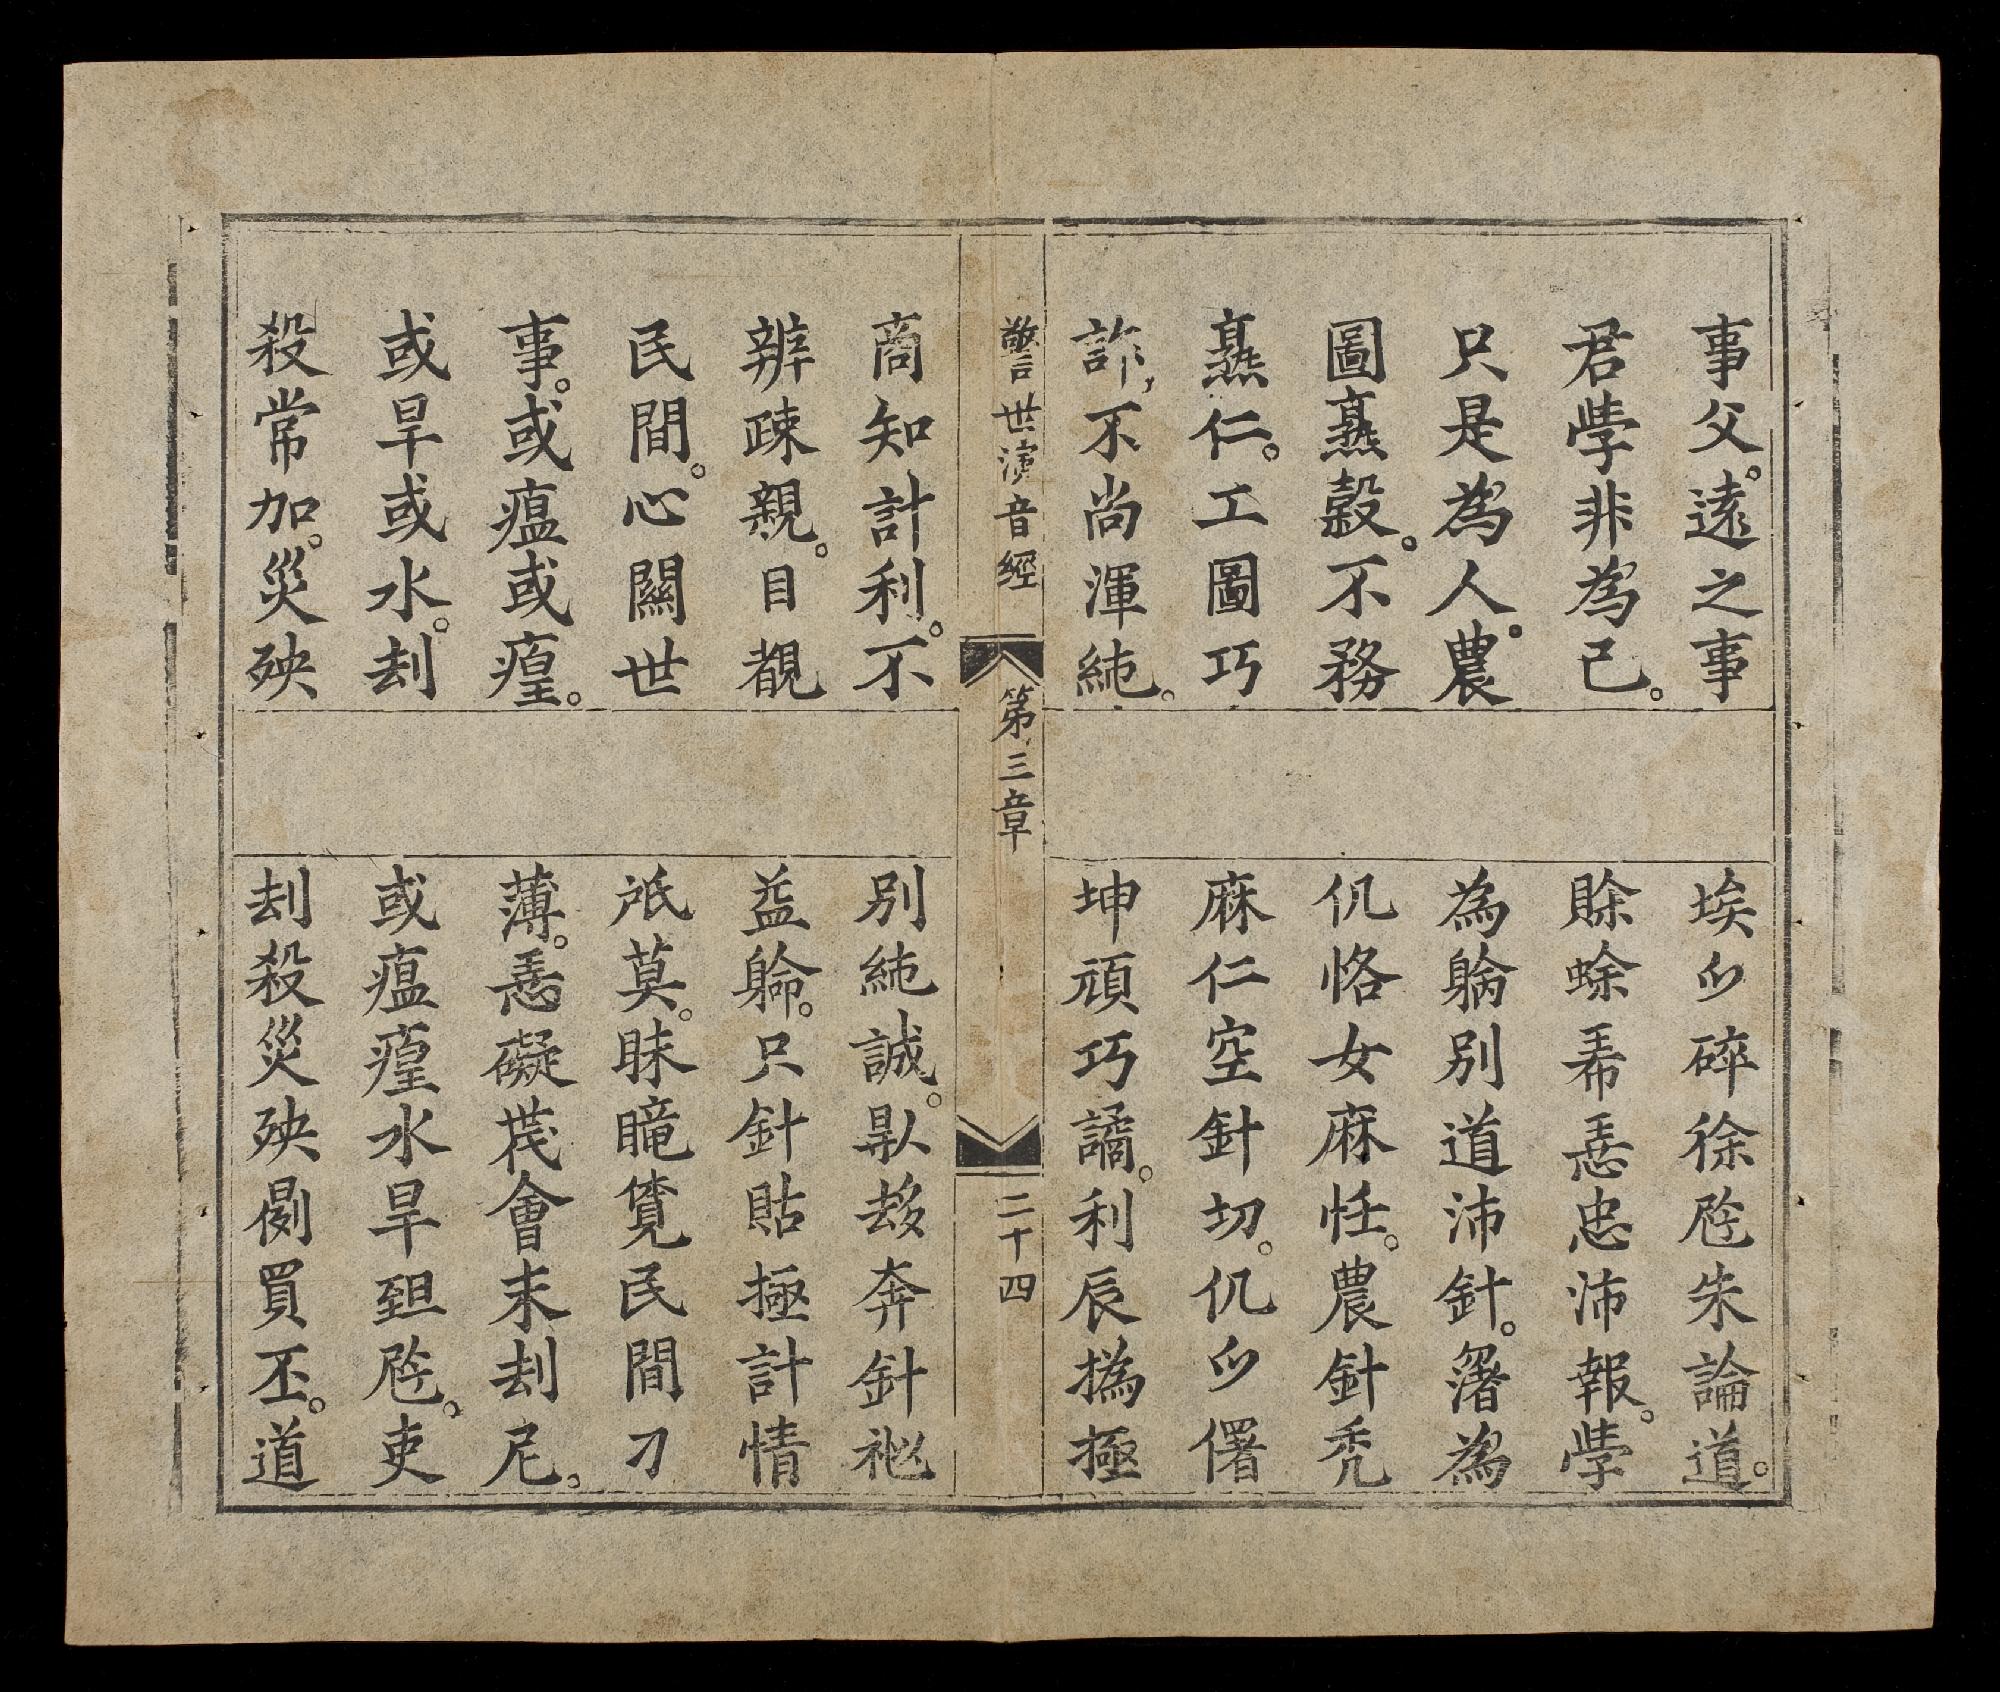 事父。遠之事
君學非為己。
只是為人。農
圖熹穀。不務
熹仁。工圖巧
詐,不尚渾純。
埃𡮈碎徐𠧆朱論道。
賖蜍𢂞𢙇忠沛報。學
為躺別道沛針。𡂂為
仉恪女麻恁。農針禿
麻仁空針切。仉𡮈僊
坤頑巧譎。利辰撝極
警世演音經
第三章
二十四
商知計利。不
辨疎親。目覩
民間。心關世
事。或瘟或瘟。
或旱或水。刦
殺常加。災殃
別純誠。㪽趍奔針
益躺。只針貼極計情
祇莫。眛䁔筧民間刁
薄。𢙇礙𦲿會末刦尼。
或瘟𤶸水旱𦤶𠧆。吏
刦殺災殃𠍵買丕。道